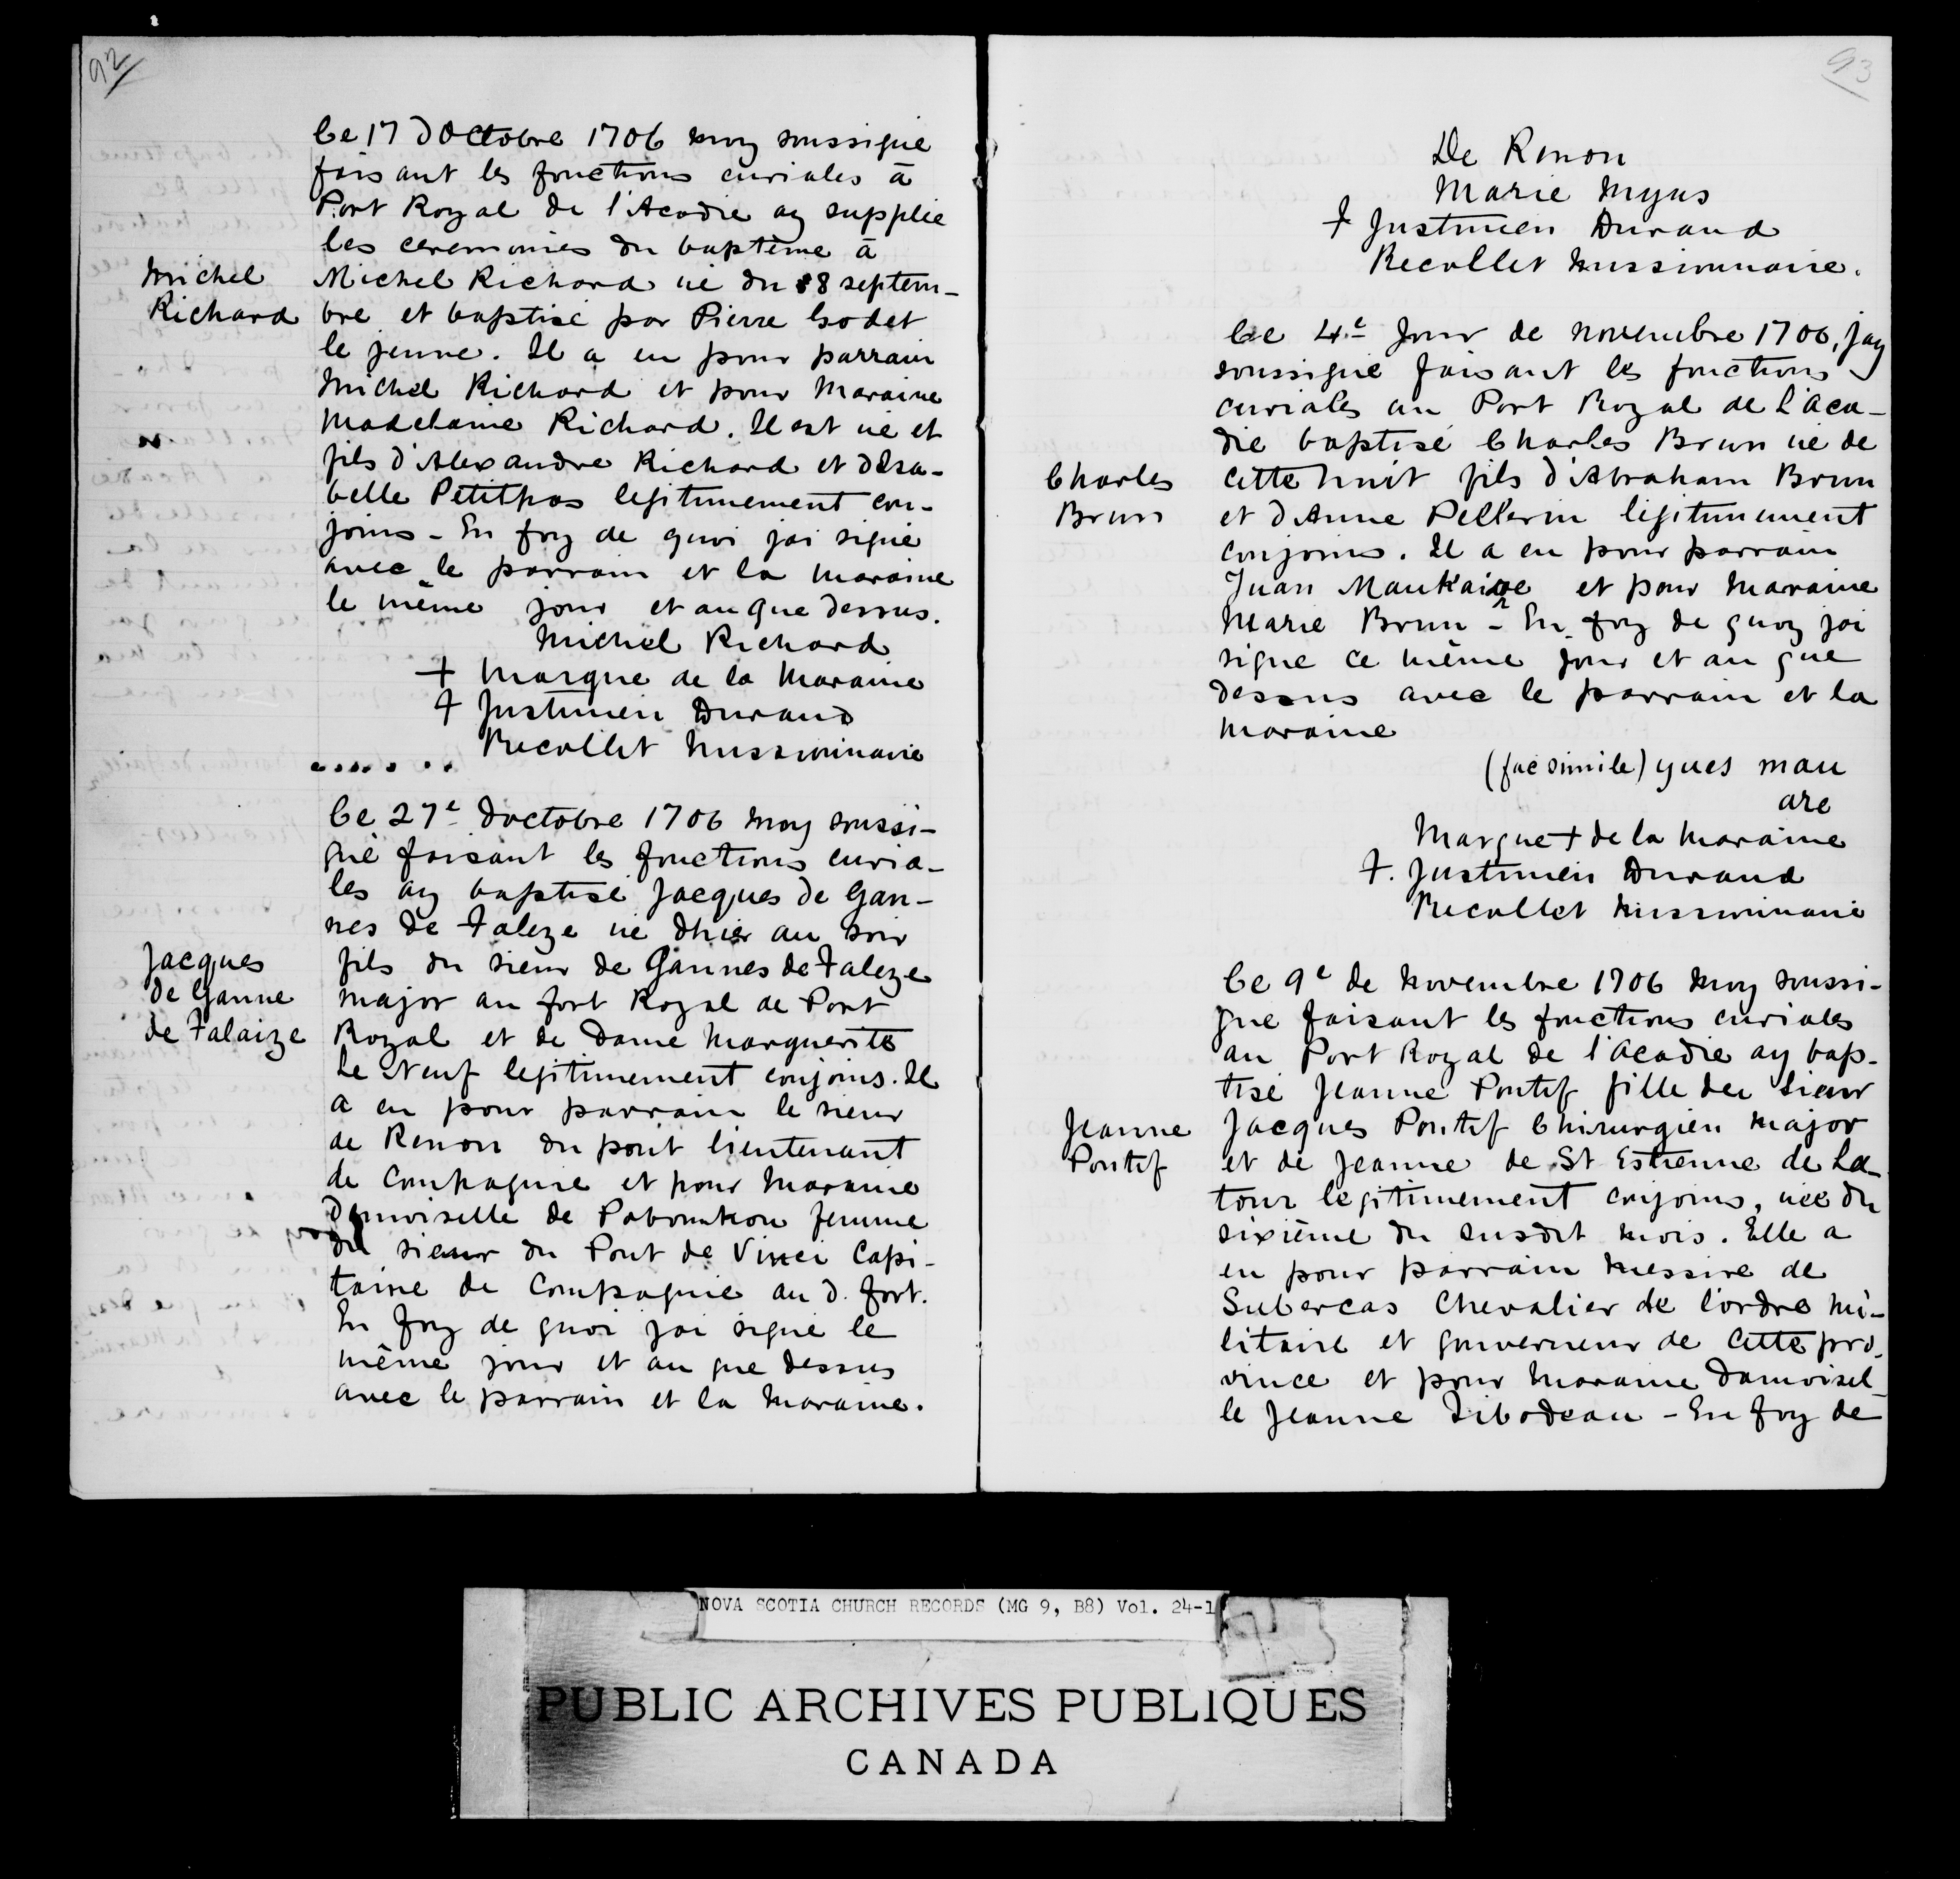 92
Ce 17 d Octobre 1706 moy soussigne
faisant les fonctions curiales à
Port Royal de l'Acadie ay supplie
les ceremonies du baptème à
Michel
Richard
Michel Richard né du 8 septem-
bre et baptisé par Pierre Godet
le jeune. Il a eu pour parrain
Michel Richard et pour Maraine
Madelaine Richard. Il est né et
fils d'Alexandre Richard et d'Isa-
belle Petitpas legitimement con-
joins - En foy de quoi jai signé
avec le parrain et la maraine
le même jour et an que dessus.
Michel Richard
+ Marque de la Maraine
+ Justinien Durand
Recollet Missionnaire
Ce 27e doctobre 1706 moy soussi-
gné faisant les fonctions curia-
les ay baptisé Jacques de Gan-
nes de Faleze né dhier au soir
Jacques
de Ganne
de Falaize
fils du sieur de Gannes de Faleze
major au fort Royal de Port
Royal et de Dame Marguerite
Le Neuf legitimement conjoins. Il
a eu pour parrain le sieur
de Renon du pont lieutenant
de Compagnie et pour Maraine
Damoiselle de Pobomkou femme
du sieur du Pont de Vinci Capi-
taine de Compagnie au d. fort.
En foy de quoi jai signé le
même jour et an que dessus
avec le parrain et la Maraine.
93
De Renon
Marie Myus
+ Justinien Durand
Recollet Missionnaire.
Ce 4e Jour de Novembre 1706, jay
soussigné faisant les fonctions
curiales au Port Royal de L'Aca-
die baptisé Charles Brun né de
Charles
Brun
cette nuit fils d'Abraham Brun
et d'Anne Pellerin legitimement
conjoins. Il a eu pour parrain
Juan Maukaire et pour Maraine
Marie Brun - En foy de quoy jai
signe ce même jour et an que
dessus avec le parrain et la
Maraine
(facsimile) yues mau
are
Marque + de la Maraine
+. Justinien Durand
Recollet Missionnaire
Ce 9e de Novembre 1706 moy soussi-
gne faisant les fonctions curiales
au Port Royal de l'Acadie ay bap-
tisé Jeanne Pontif fille du Sieur
Jeanne
Pontif
Jacques Pontif Chirurgien Major
et de Jeanne de St Estienne de La
tour legitimement conjoins, née du
sixième du susdit mois. Elle a
eu pour parrain Messire de
Subercas Chevalier de l'ordre mi-
litaire et gouverneur de cette pro-
vince et pour Maraine Damoisel-
le Jeanne Tibodeau - En foy de
NOVA SCOTIA CHURCH RECORDS (MG 9, B8) Vol. 24-1
PUBLIC ARCHIVES PUBLIQUES
CANADA